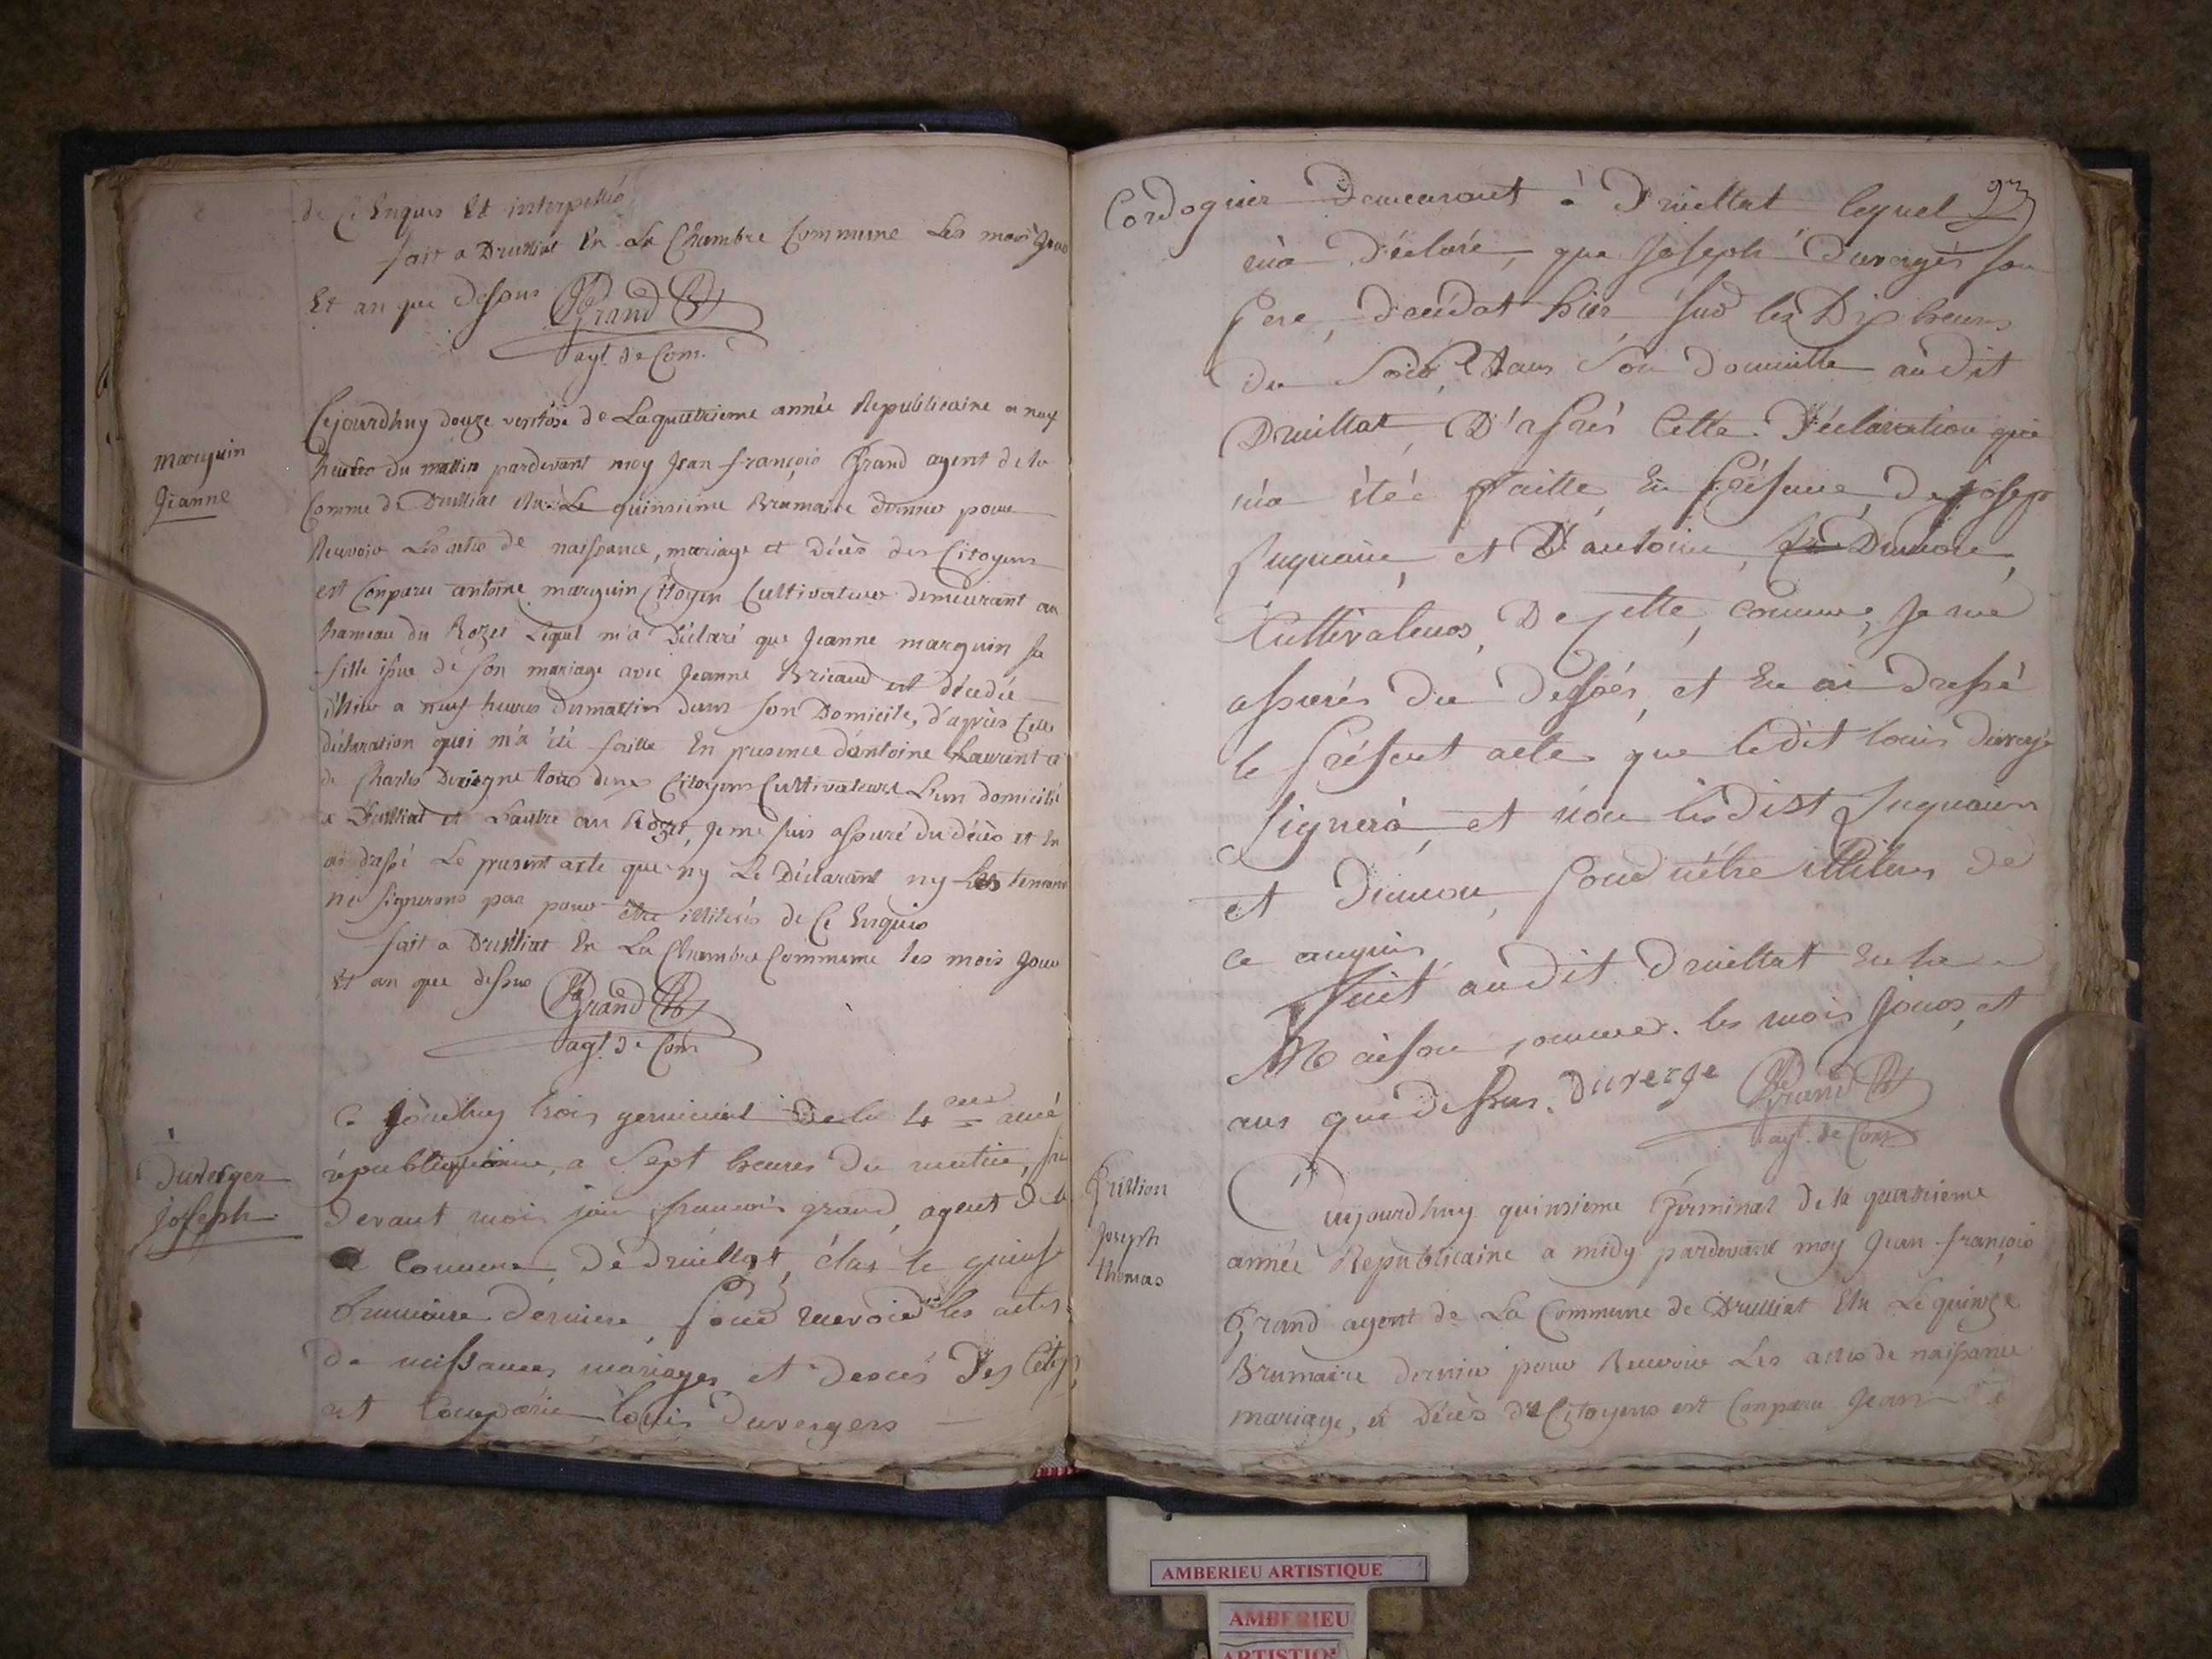 de Ce Enquis Et interpellés
fait a Druilliat En La Chambre Commune Les mois Jour
Et an que dessus Grand
agt. de Com.
marguin
Jeanne
Cejourdhuy douze ventose de Laquatrieme année Republicaine a neuf
heures du matin pardevant moy Jean françois Grand agent de la
Comme de Druilliat Elu Le quinsieme Brumaire dernier pour
Recevoir Les actes de naissance, mariage et décès des Citoyens
est Conparu antoine marguin Citoyen Cultivateur demeurant au
hameau du Rozet Lequel m'a Déclaré que Jeanne marguin sa
fille issue de son mariage avec Jeanne Bricaud est décedée
d'hier a neuf heures du matin dans son Domicile, d'après Cette
déclaration quoi m'a été faitte En presence d'antoine Laurent
de Charles Devigne tous deux Citoyens Cultivateurs L'un domicilié
a Druilliat et L'autre au Rozet, je me suis assuré du décès et En
ai dressé Le present acte que ny Le Déclarant ny Les temoins
ne signerons pas pour être illiterés de Ce Enquis
fait a Druilliat En La Chambre Commune les mois Jour
Et an que dessus Grand
agt. de Com
duverger
joseph
Ce jourdhuy trois germinal de la 4 eme anné
républiquaine, a Sept heures du matin,
devant mois jan françois grand, agent de la
Commune, de druillat, élus le quinse
brumaire derniere, pour recevoir les actes
de naissances mariages et deces des
est Comparu louis duvergers
93
Cordognier Demeurant à Druillat lequel
m'a déclaré, que Joseph Duvergés son
pere, décédat hier, sur les Dix heures
du Soir, Dans Son Domicille audit
Druillat, D'après Cette Déclaration que
m'a étée faitte, En présence, de josep
juguain, et D'antoine, Dumon,
Cultivateurs, De sette, Commune, Je me
assurés du Dessés, et En ai dressé
le présent acte que ledit louis duverge
Signera, et non lesdist juguain
et Dumon, pour n'être illiteres de
ce enquis
fait audit druillat En la
Maison commune les mois Jours, et
ans que dessus. duverge Grand
agt. de Com
Joseph
thomas
Cejourdhuy quinsieme Germinal de la quatrieme
année Republicaine a midy pardevant moy Jean françois
Grand agent de La Commune de Druilliat Elu Le quinze
Brumaire dernier pour Recevoir Les actes de naissance
mariage, et Décès de Citoyens est Conparu Jean
AMBERIEU ARTISTIQUE
AMBERIEU
ARTISTIQUE